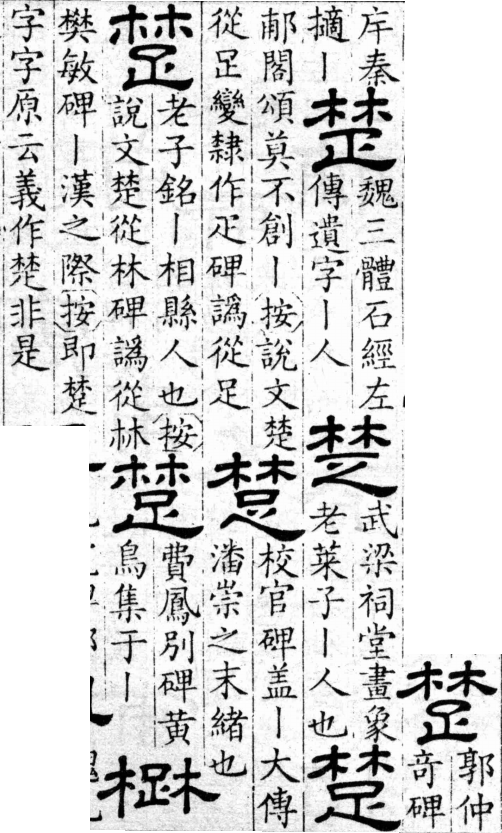 楚
郭仲
奇碑
斥秦
擿丨
楚
魏三體石經左
傳遺字丨人
楚
武梁祠堂畫象
老萊子丨人也
楚
郙閣頌莫不創丨按說文楚
從疋變隸作疋碑譌從足
楚
校官碑盖丨大傅
潘崇之末緒也
楚
老子銘丨相縣人也按
說文楚從林碑譌從𣏟
楚
費鳳別碑黄
鳥集于丨
樊敏碑丨漢之際按即楚
字字原云義作楚非是